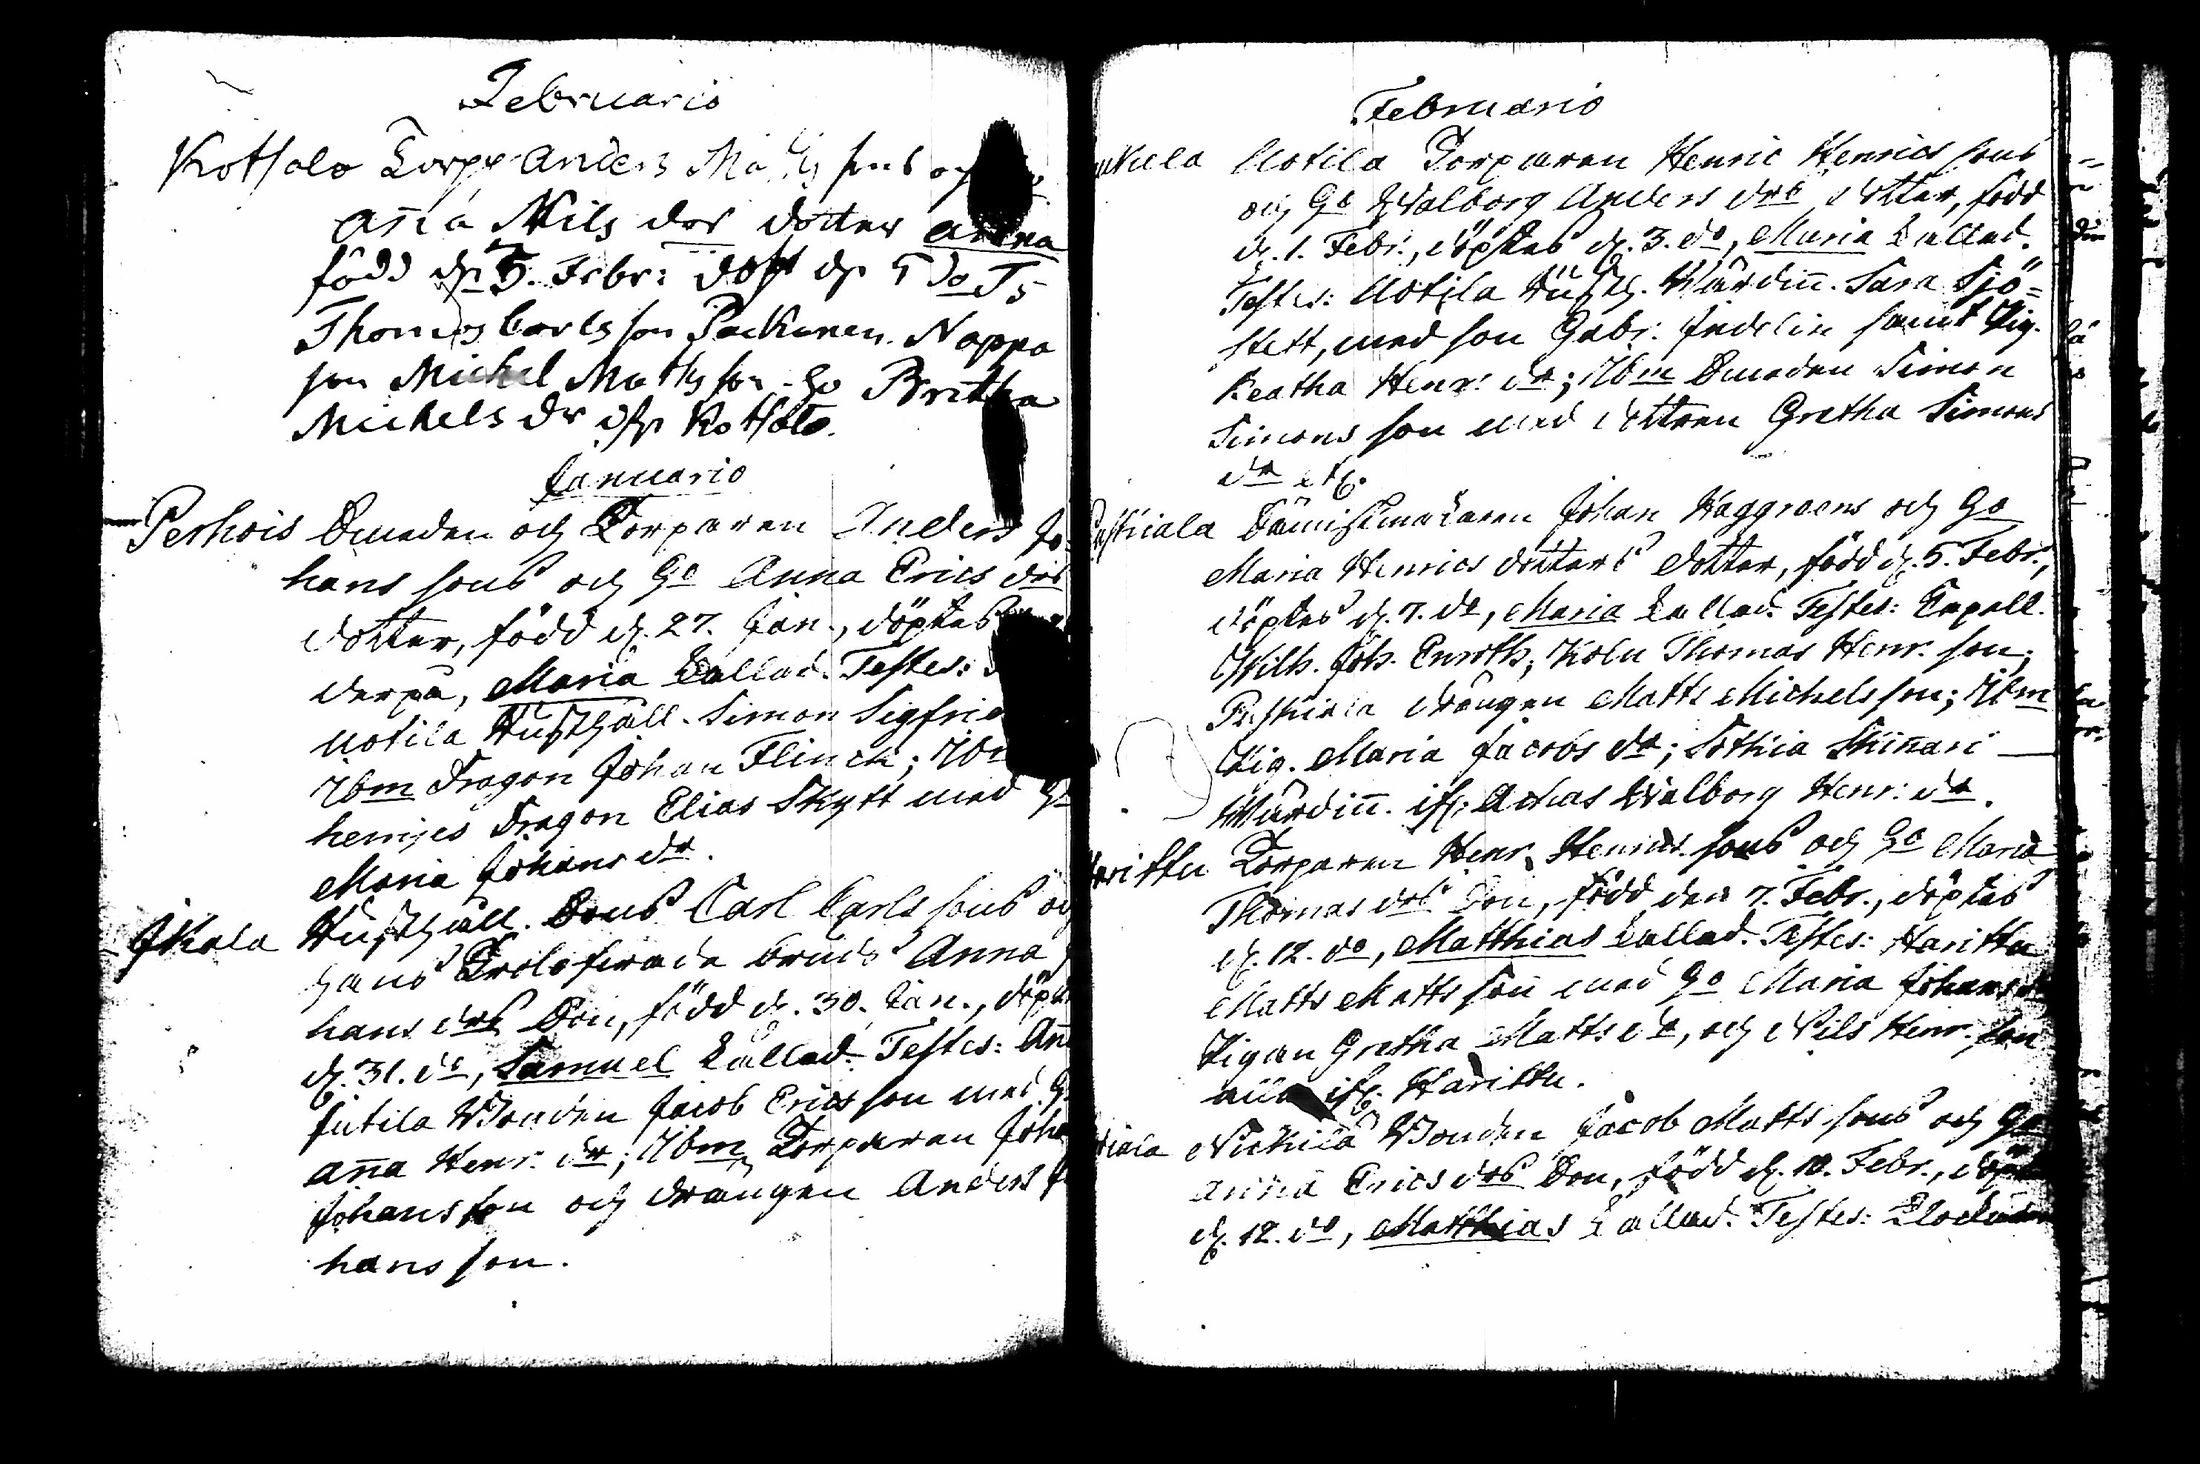 Februario
Kotsalo Torp: Anders Matts sons och
Anna Nils dor dotter Anna
född d. 3. Febr: döpt d. 5 do Ts
Thomas Carls son Packanen. Nappa
son Michel Matts son Go Britha
Michels dr ifr. Kotsalo.
Januario
Perhois Bonden och Torparen Anders Jo-
hans sons och Ho Anna Erics drs
dotter, född d. 27. Jan., döptes
derpå, Maria kallad. Testes:
Uotila Hushåll. Simon Sigfrid
Ibm Dragon Johan Flinck; Ib
hemjes Dragon Elias Skytt med Ho
Maria Johans dr.
Jkala Hushåll. Sons Carl Carls sons och
hans Troloferade bruds Anna
hans drs Son, född d. 30. Jan., döptes
d. 31. do, Samuel kallad. Testes: An
Jutila Bonden Jacob Ericsson med
Anna Henr. dr; Ibm Torparen Joha
Johans son och drängen Anders Jo
hans son.
Februario
Uotila Torparen Henric Henrics sons
och Ho Walborg Anders drs dotter, född
d. 1. Febr., döptes d. 3. do, Maria kallad.
Testes: Uotila Hush. Wärdinn. Sara Sjö=
stett, med son Gabr. Indelin samt Pig.
Beatha Henr. dr; Ibm Bonden Simon
Simons son med dottren Gretha Simons
dr etc.
Dännismakaren Johan Haggroens och Ho
Maria Henrics dotters dotter, född d. 5. Febr.,
döptes d. 7. do, Maria kallad. Testes: Capell.
Wilh. Joh. Enroth; Kolu Thomas Henr. son;
Puskiala drängen Matts Michels son; Ibm
Pig. Maria Jacobs dr; Sotkia Skinnari
Wärdinn. Walborg Henr. dr.
Harittu Torparen Henr. Henrics sons och Ho Maria
Thomas drs Son, född den 7. Febr., döptes
d. 12. do, Matthias kallad. Testes: Harittu
Matts Matts son med Ho Maria Johans dr
Pigan Gretha Matts dr, och Nils Henr. son
alla ifr. Harittu.
Nickilä Bonden Jacob Matts sons och Ho
Anna Erics drs Son, född d. 10. Febr., döpt
d. 12. do, Matthias kallad. Testes: Clockaren